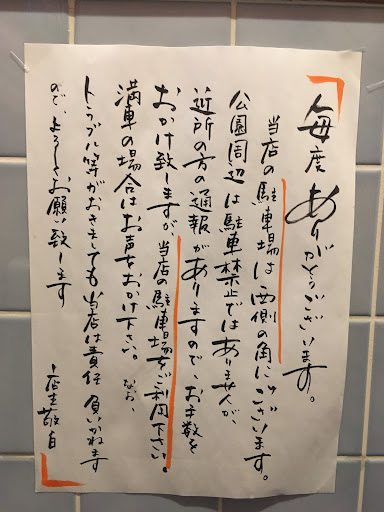 毎度ありがとうございます。
当店の駐車場は西側の角にございます。
公園周辺は駐車禁止ではありませんが、
近所の方の通報がありますので、お手数を
おかけ致しますが、当店の駐車場をご利用下さい。
満車の場合はお声をおかけ下さい。なお、
トラブル等がおきましても当店は責任負いかねます
ので、よろしくお願い致します
店主敬白